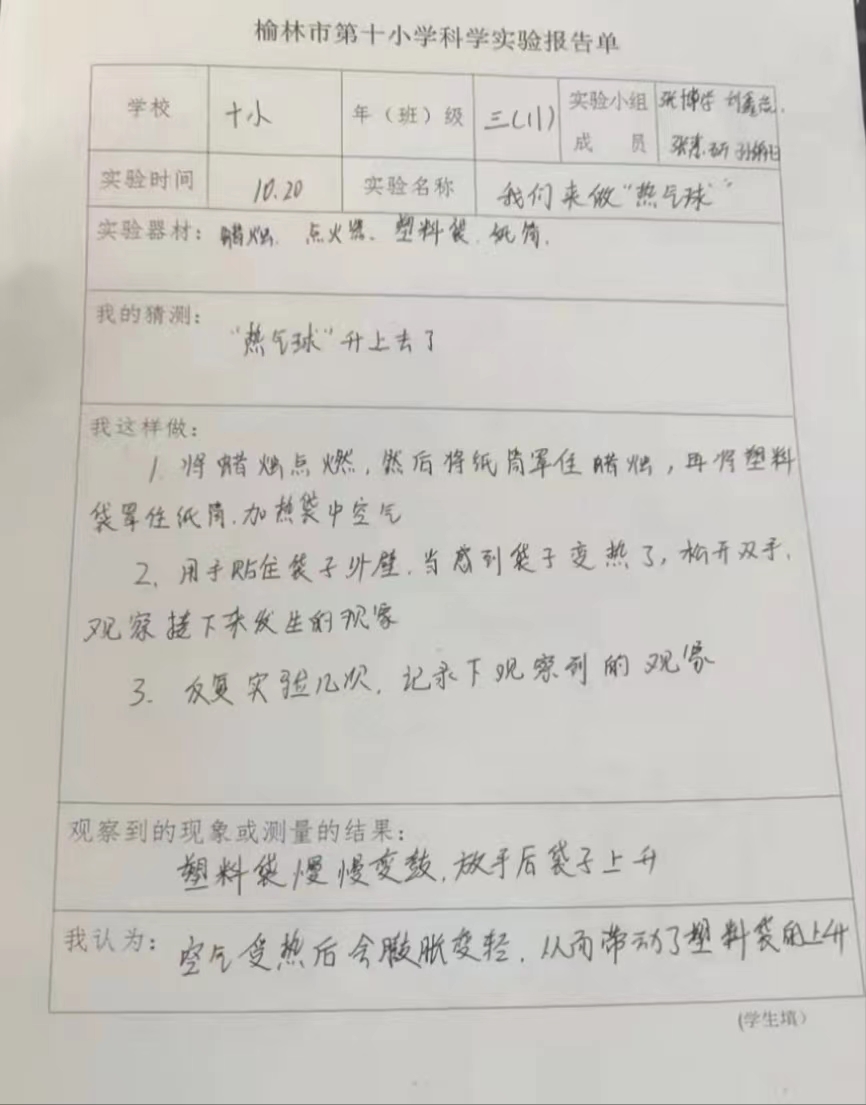 榆林市第十小学科学实验报告单
学校 十小 年（班）级 三(11) 实验小组 张博学
成 员
实验时间 10.20 实验名称 我们来做“热气球”
实验器材：蜡烛. 点火器. 塑料袋. 纸筒.
我的猜测：
“热气球”升上去了
我这样做：
1. 将蜡烛点燃，然后将纸筒罩住蜡烛，再将塑料
袋罩住纸筒.加热袋中空气
2. 用手贴住袋子外壁.当感到袋子变热了，松开双手.
观察接下来发生的现象
3. 反复实验几次，记录下观察到的现象
观察到的现象或测量的结果：
塑料袋慢慢变鼓.放手后袋子上升
我认为：空气受热后会膨胀变轻.从而带动了塑料袋的上升
(学生填）